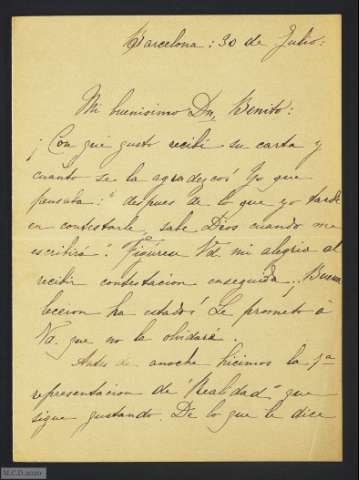 Barcelona: 30 de Julio:
Mi buenisimo Dn. Benito:
¡Con qué gusto recibí su carta y
cuanto se la agradezco! Yo que
pensaba: "despues de lo que yo tardé
en contestarle, sabe Dios cuando me
escribirá". Figúrese Vd. mi alegria al
recibir contestacion enseguida. ¡Buena
leccion ha estado! Le prometo á
Vd. que no la olvidaré.
Antes de anoche hicimos la 7ª
representacion de "Realidad" que
sigue gustando. De lo que le dice
M.C.D. 2020